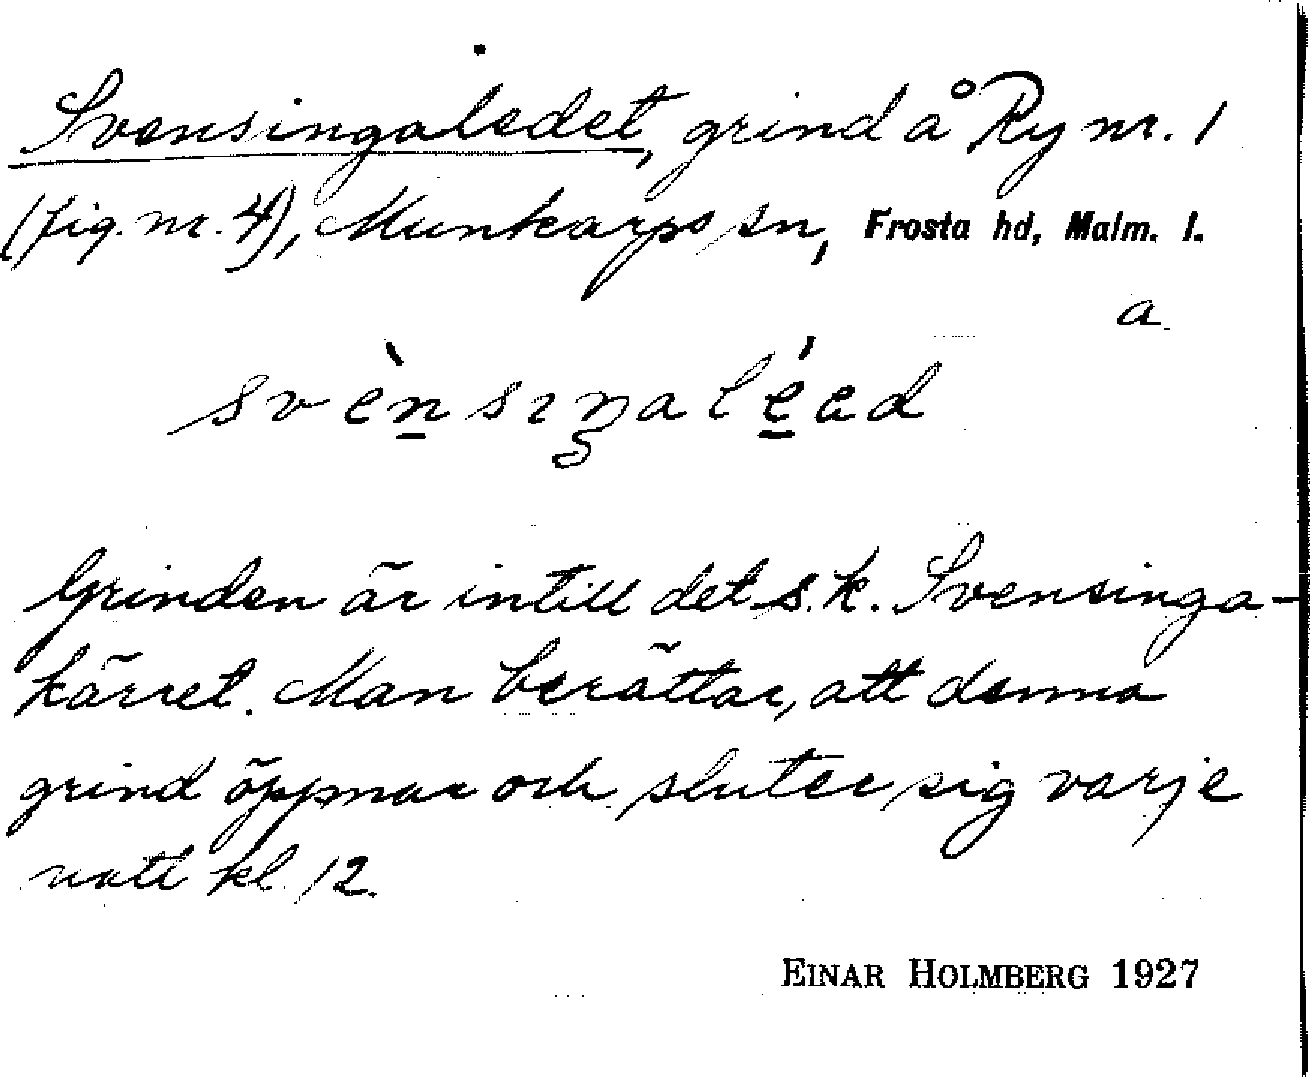 Svensingaledet, grind å Ry nr. 1
(fig. nr. 4), Munkarps sn, Frosta hd, Malm. l.
a.
svènsıŋaléed
Grinden är intill det s.k. Svensinga-
kärret. Man berättar, att denna
grind öppnar och sluter sig varje
natt kl. 12.
EINAR HOLMBERG 1927